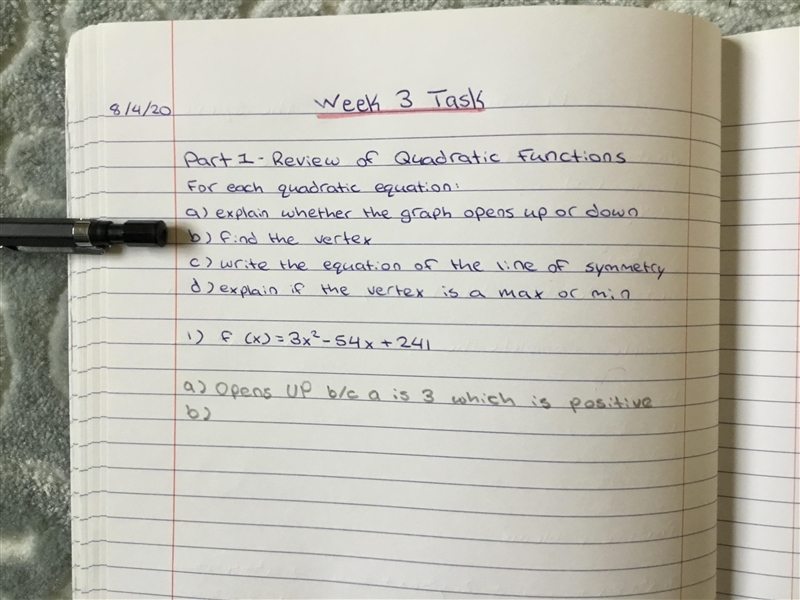 8/4/20
Week 3 Task
Part 1 - Review of Quadratic Functions
For each quadratic equation:
a) explain whether the graph opens up or down
b) find the vertex
c) write the equation of the line of symmetry
d) explain if the vertex is a max or min
1) f(x) = 3x² - 54x + 241
a) Opens UP b/c a is 3 which is positive
b)